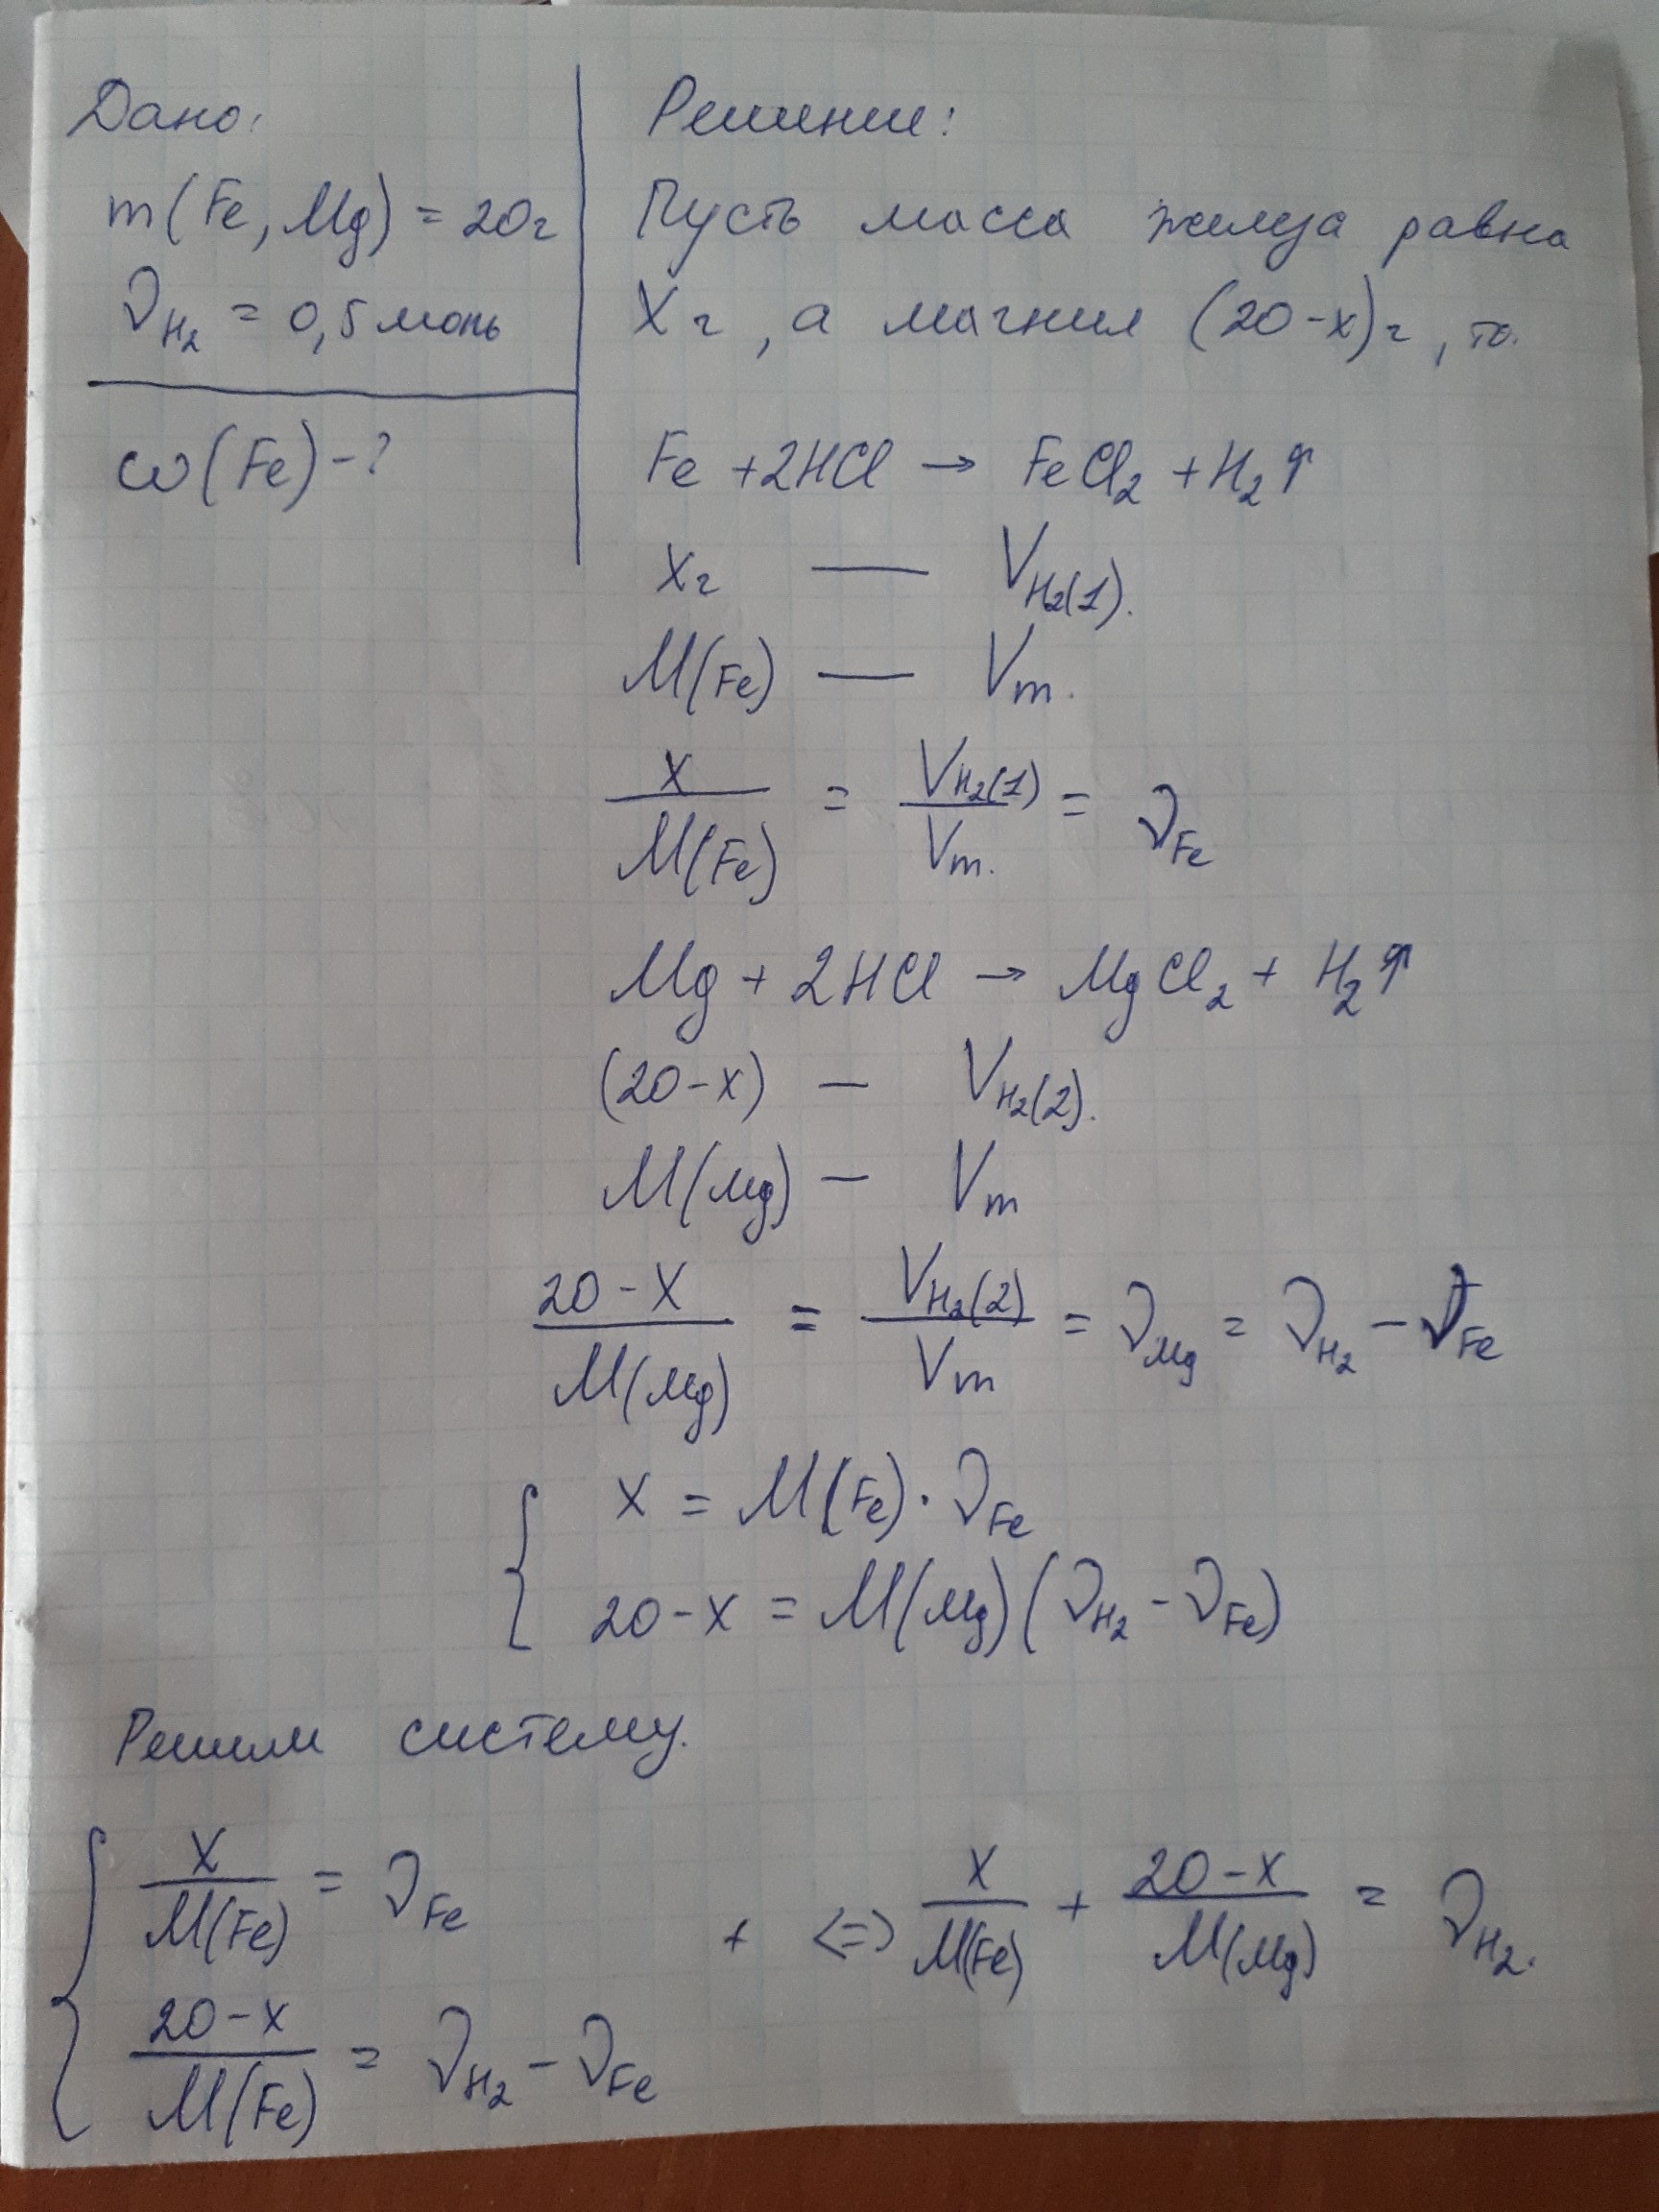 Дано:
m(Fe, Mg) = 20г
νH₂ = 0,5 моль
ω(Fe) - ?
Решение:
Пусть масса железа равна
Xг, а магния (20-x)г, то.
Fe + 2HCl → FeCl₂ + H₂↑
Xг — V H₂(1).
M(Fe) — Vm.
X/M(Fe) = V H₂(1)/Vm. = νFe
Mg + 2HCl → MgCl₂ + H₂↑
(20-x) — V H₂(2).
M(Mg) — Vm
20-X/M(Mg) = V H₂(2)/Vm = νMg = νH₂ - νFe
{ X = M(Fe) · νFe
20-X = M(Mg)(νH₂ - νFe)
Решим систему.
{ X/M(Fe) = νFe
20-X/M(Fe) = νH₂ - νFe
+ <=> X/M(Fe) + 20-X/M(Mg) = νH₂.